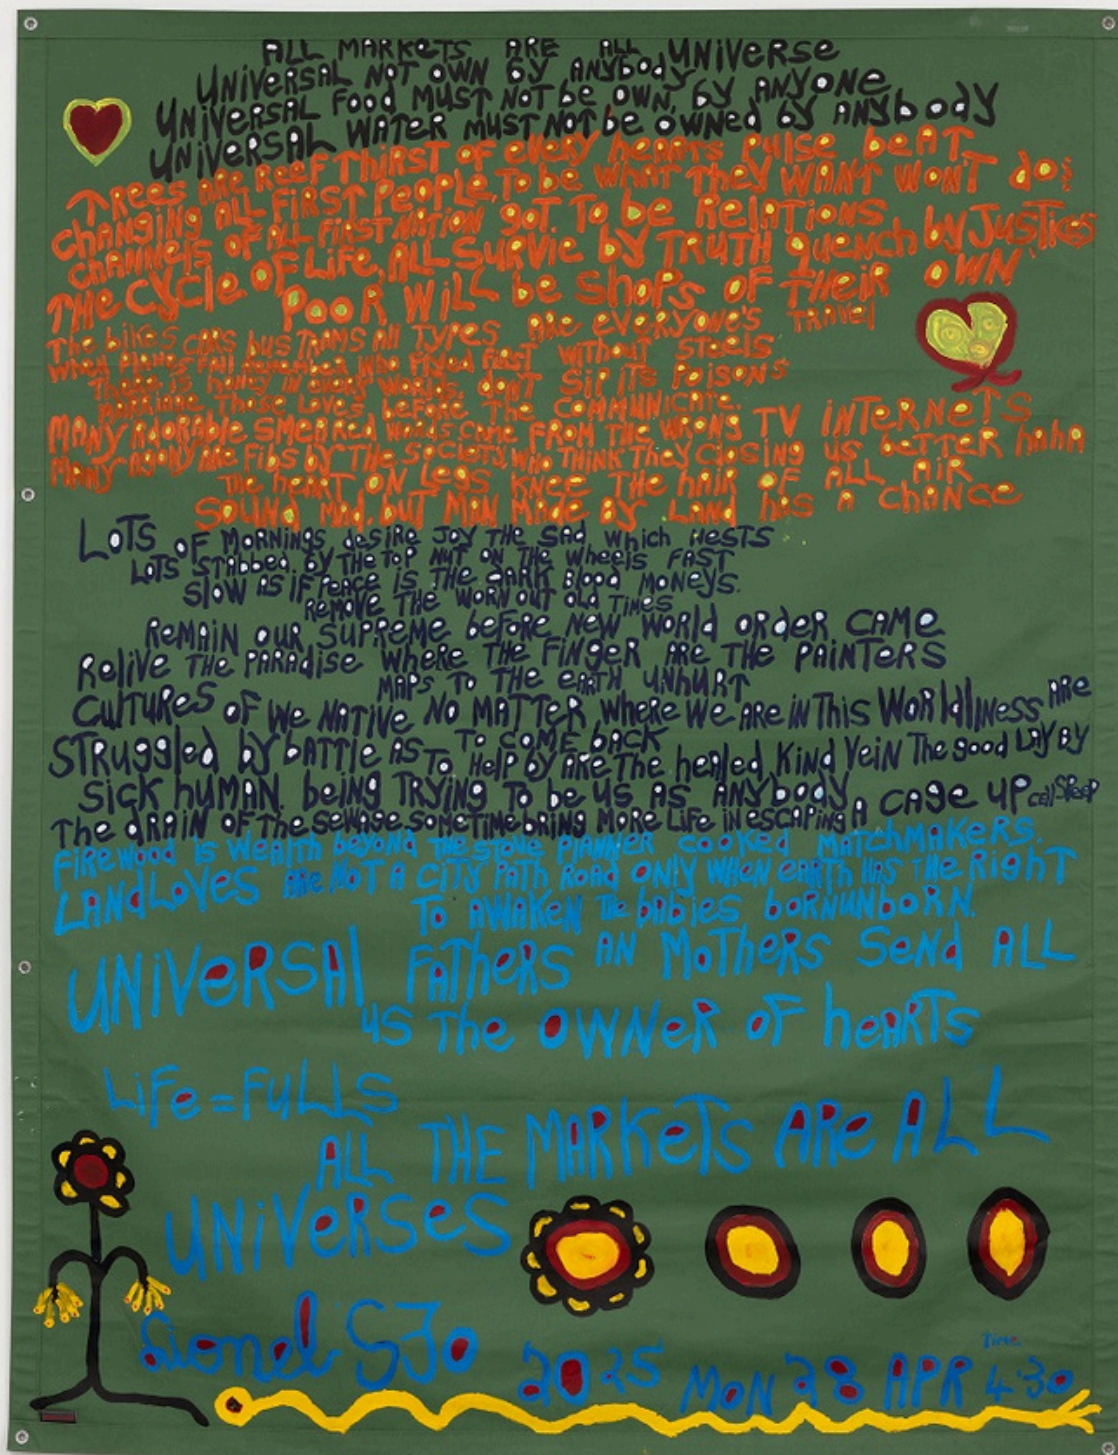 ALL MARKETS ARE ALL UNIVERSE
UNIVERSAL NOT OWN BY ANYBODY
UNIVERSAL FOOD MUST NOT be OWN, by ANYONE
UNIVERSAL WATER MUST NOT be OWNed by ANYbody
TREES ARE REEF THIRST OF eveRy heARTS PULSE beAT
changing ALL FIRST PEOPLE, To be WHAT They WANT WONT do
channels OF ALL FIRST NATION goT To be RelATIONS
The Cycle OF Life, ALL SURVIE by TRUTH quench by JusTices
POOR WILL be shops OF TheiR OWN
The bikes CARS bus TRAMS All Types ARE eveRyONe's TRAvel
when PlANes FAll RemembeR who Flyed FirsT withouT sTeels
TheRe is honey in eveRy WoRlds, don'T Sip iTs Poisons
MARRIAge Those Loves before The COMMUNICATe
MANY AdoRAble SMeARed woRds CAMe FROM The wRONg TV iNTeRNeTs
MANY AgONy ARe Fibs by The SocieTy, who ThiNK They closing us beTTeR hAhA
The heARt ON Legs KNee The hAiR OF ALL AIR
SOUND MAd, buT MAN MAde by LANd hAs A chANce
LOTS OF MORNiNgs desiRe Joy The SAd which NesTs
LoTs STAbbed by The Top NuT on The wheels FAST
Slow As iF PeAce is The dARk blood MoNeys.
Remove The woRN ouT old Times
ReMAiN ouR SupReMe befoRe New WoRld oRdeR CAMe
Relive The PARAdise wheRe The FiNgeR ARe The PAiNTeRs
MAPs To The eARTh UNhuRT
CulTuRes oF We NATive No MATTeR WheRe We ARe iN This WoRld IllNess ARe
STRuggled by bATTle As To CoMe bAck
To help by ARe The heAled Kind Vein The good LAy by
Sick huMAN. being TRying To be us As ANybody A cAge up
The dRAiN oF The sewAge someTime bRiNg MoRe Life iN escApiNg
FiRewood is weAlTh beyoNd The sTove PlANNeR cooked MATchMAkeRs.
LANdLoVes ARe NoT A ciTy PATh RoAd oNly wheN eARTh hAs The RighT
To AwAkeN The bAbies boRN uNboRN.
UNiVeRSAl FATheRS AN MoTheRS Send ALL
us The OWNeR OF heARTs
Life = FULLS
ALL THE MARKeTS ARe ALL
UNiVeRSeS
Lionel SJo 2025 MoN 28 APR Time 4.30